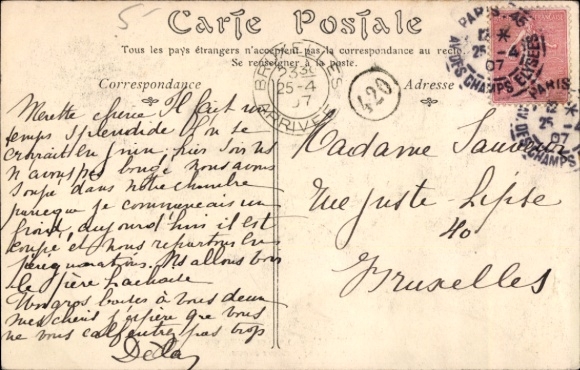 Carte Postale
Tous les pays étrangers n'acceptent pas la correspondance au recto.
Se renseigner à la poste.
Correspondance
Adresse
PARIS 45
12*
25-4
07
AV. DES CHAMPS ELYSEES
PARIS
12*
25-4
07
AV. DES CHAMPS
BRUXELLES
25-4
07
ARRIVEE
420
chérie Il fait un
temps splendide On se
croirait en juin, hier soir ns
n'avons pas bougé nous avons
soupé dans notre chambre
parce que je commençais un
froid, aujourd'hui il est
coupé et nous repartons en
pérégrinations. Ns allons voir
le père Lachaise
Un gros à vous deux
mes chéris j'espère que vous
ne vous calfeutrez pas trop
Madame
Rue Juste Lipse
40
Bruxelles